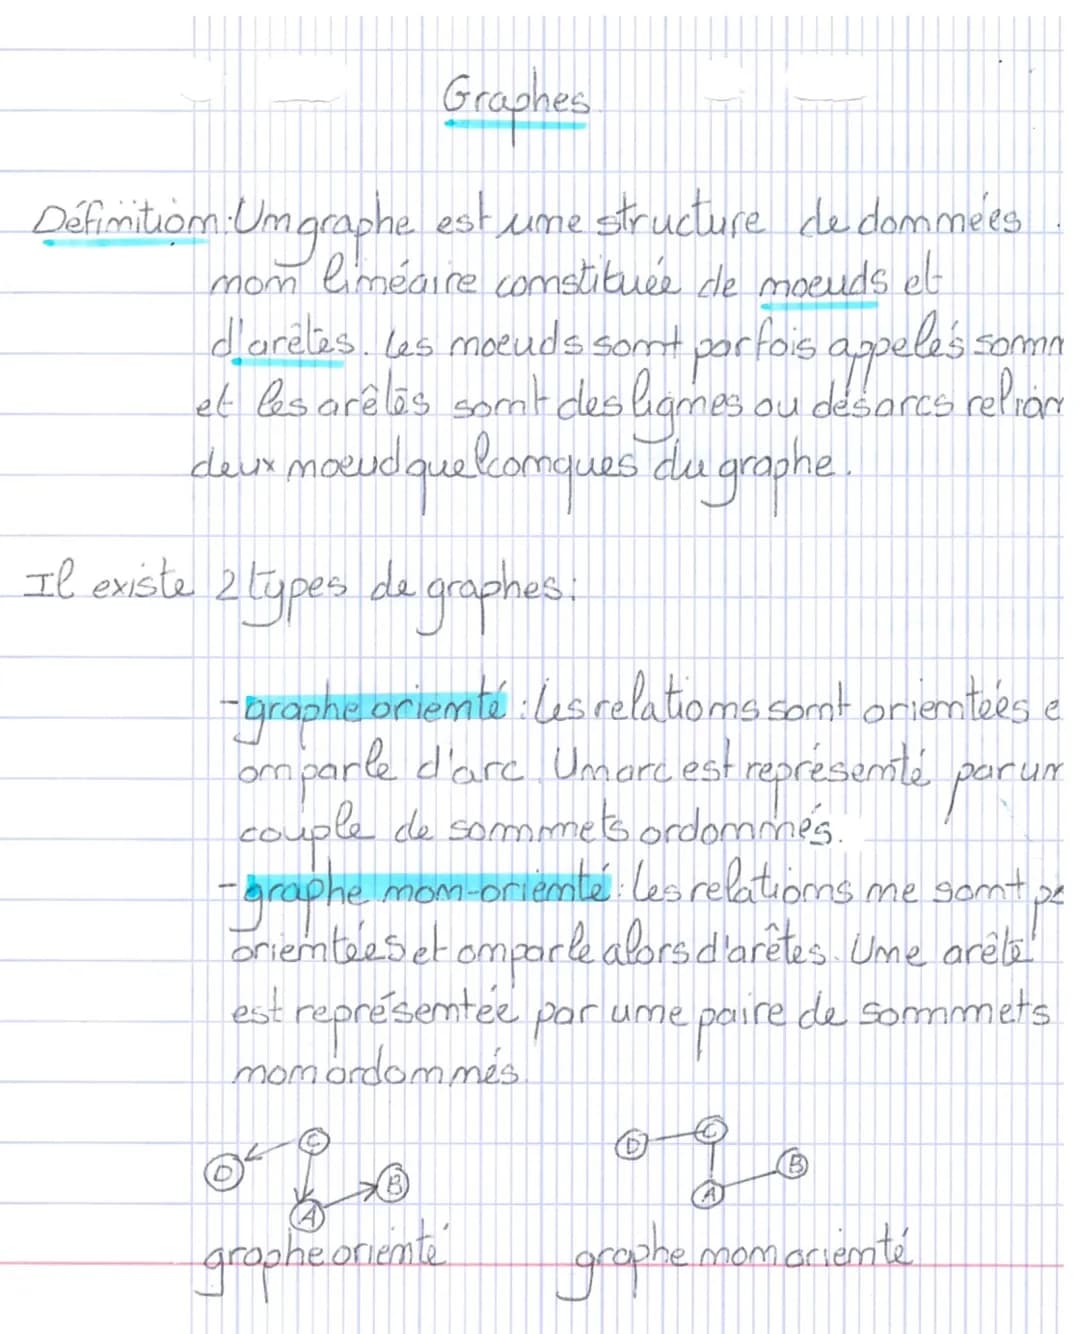 Graphes
Définition: Un graphe est une structure de données
non linéaire constituée de noeuds et
d'arêtes. Les noeuds sont parfois appelés somm
et les arêtes sont des lignes ou des arcs relian
deux noeud quelconques du graphe.
Il existe 2 types de graphes:
-graphe orienté: Les relations sont orientées e
on parle d'arc. Un arc est représenté par un
couple de sommets ordonnés.
-graphe non-orienté: Les relations ne sont pa
orientées et on parle alors d'arêtes. Une arête
est représentée par une paire de sommets
non ordonnés.
D C A B
D C A B
graphe orienté graphe non orienté